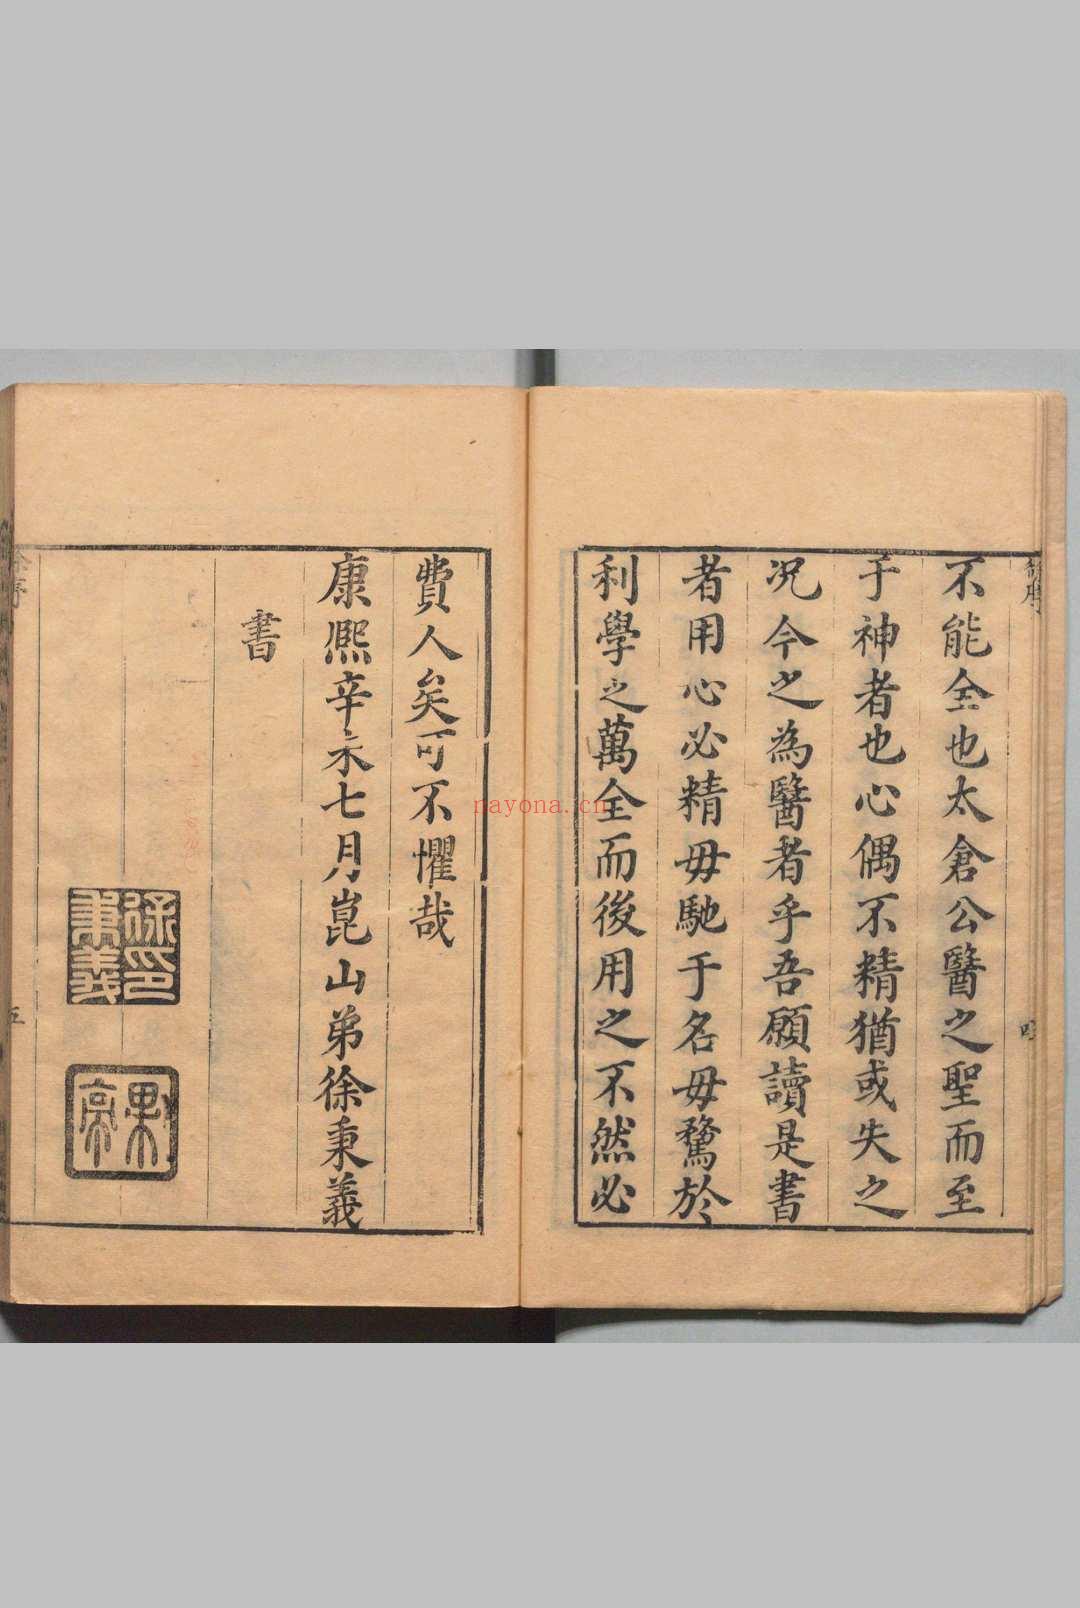 不能全也太倉公醫之聖而至
于神者也心偶不精猶或失之
况今之為醫者乎吾願讀是書
者用心必精毋馳于名毋騖於
利學之萬全而後用之不然必
費人矣可不懼哉
康熙辛未七月崑山弟徐秉義
書
徐印
秉義
果亭
nayona.cn
五